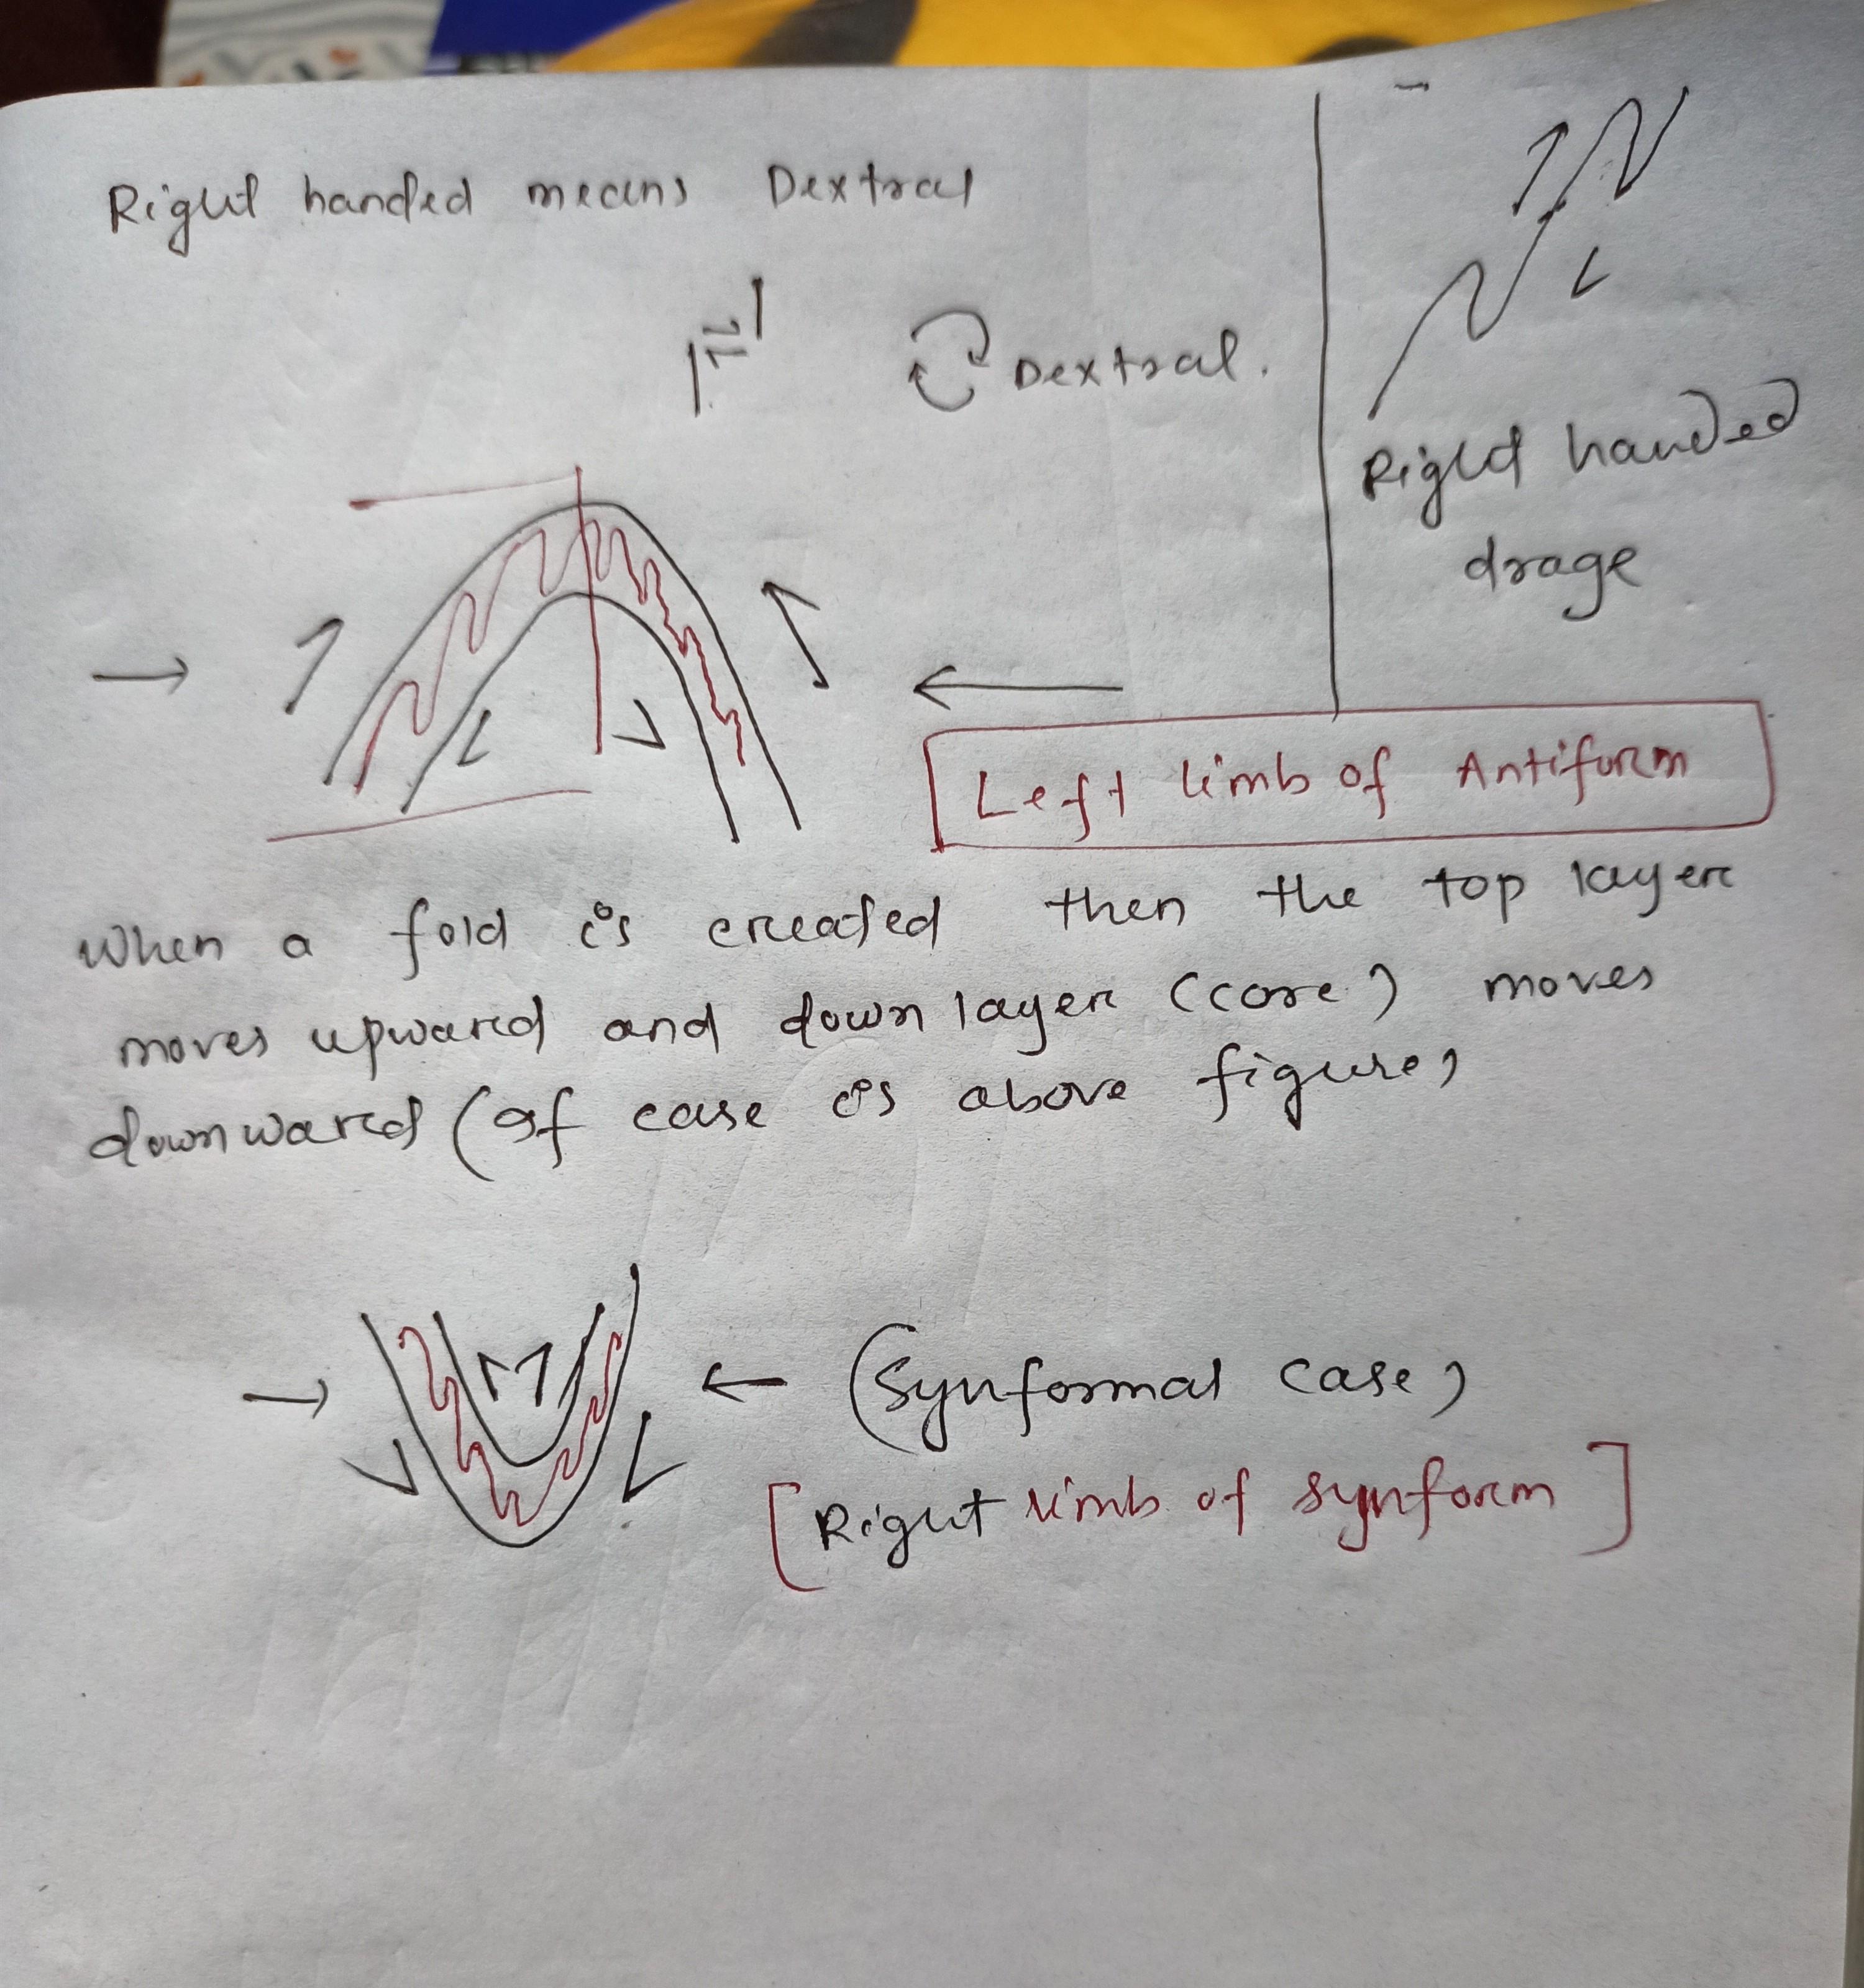 Right handed means Dextral
Dextral.
Right handed
drage
Left limb of Antiform
When a fold is created then the top layer
moves upward and down layer (core) moves
downward (If case is above figure)
(Synformal case)
[Right limb of synform]